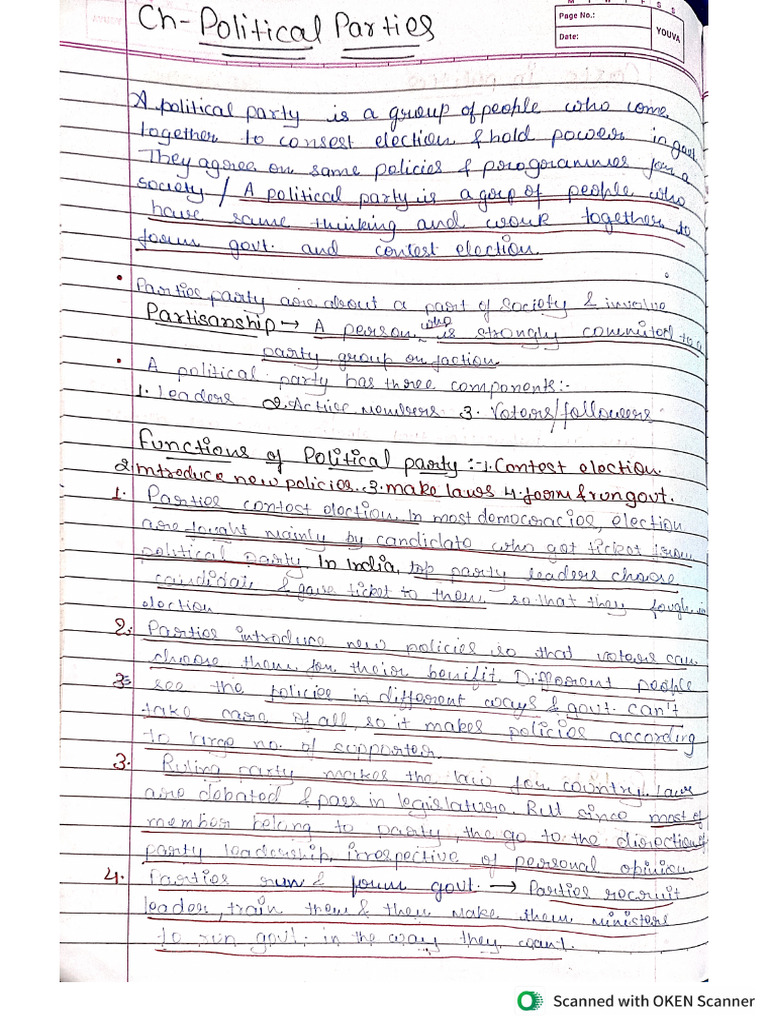 Ch- Political Parties
Page No.:
Date:
YOUVA
A political party is a group of people who come
together to consest election & hold power in govt.
They agree on same policies & porogorammes for a
society / A political party is a gorp of people who
have same thinking and work together to
form govt. and contest election.
• Parties party are about a part of society & involve
Partisanship → A person who is strongly commited to a
party group or faction
• A political party has three components:-
1. leaders 2. Active members 3. Voters/followers
Functions of Political party :- 1. Contest election.
2. introduce new policies. 3. make laws 4. form & run govt.
1. Parties contest election. In most democracies, election
are fought mainly by candidate who got ticket from
political party. In India, top party leaders choose
candidate & gave ticket to them so that they fough in
election
2. Parties introduce new policies so that voters can
choose them for their benifit. Different people
3 see the policies in different ways & govt. can't
take care of all, so it makes policies according
to large no. of supporter.
3. Ruling party makes the law for country. laws
are debated & pass in legislature. But since most of
member belong to party, the go to the direction of
party leadership, irrospective of personal opinion
4. Parties run & form govt. → Parties recruit
leader, train them & then make them ministers
to run govt. in the way they want.
Scanned with OKEN Scanner